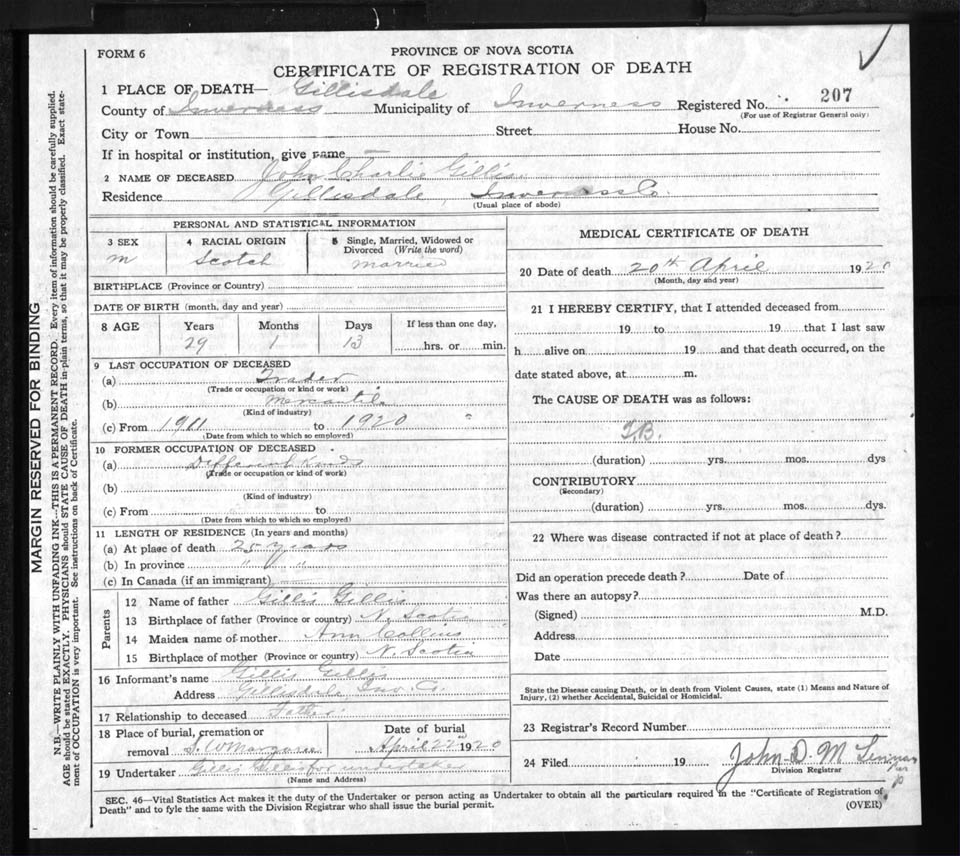 FORM 6
PROVINCE OF NOVA SCOTIA
CERTIFICATE OF REGISTRATION OF DEATH
1 PLACE OF DEATH— Gillisdale
County of Inverness Municipality of Inverness Registered No. 207
(For use of Registrar General only)
City or Town Street House No.
If in hospital or institution, give name —
2 NAME OF DECEASED John Charlie Gillis
Residence Gillisdale, Inverness Co.
(Usual place of abode)
PERSONAL AND STATISTICAL INFORMATION
3 SEX 4 RACIAL ORIGIN 5 Single, Married, Widowed or Divorced (Write the word)
M Scotch Married
BIRTHPLACE (Province or Country)
DATE OF BIRTH (month, day and year)
8 AGE Years Months Days If less than one day,
29 1 13 hrs. or min.
9 LAST OCCUPATION OF DECEASED
(a) Trader
(Trade or occupation or kind or work)
(b) Mercantile
(Kind of industry)
(c) From 1911 to 1920
(Date from which to which so employed)
10 FORMER OCCUPATION OF DECEASED
(a) Different kinds
(Trade or occupation or kind of work)
(b)
(Kind of industry)
(c) From to
(Date from which to which so employed)
11 LENGTH OF RESIDENCE (In years and months)
(a) At place of death 25 years
(b) In province " "
(c) In Canada (if an immigrant)
Parents
12 Name of father Gillis Gillis
13 Birthplace of father (Province or country) N. Scotia
14 Maiden name of mother Ann Collins
15 Birthplace of mother (Province or country) N. Scotia
16 Informant's name Gillis Gillis
Address Gillisdale Inv. Co.
17 Relationship to deceased Father
18 Place of burial, cremation or removal S. W Margaree
Date of burial April 22 1920
19 Undertaker Gillis Gillis for undertaker
(Name and Address)
MEDICAL CERTIFICATE OF DEATH
20 Date of death 20th April 1920
(Month, day and year)
21 I HEREBY CERTIFY, that I attended deceased from
19 to 19 that I last saw
h alive on 19 and that death occurred, on the
date stated above, at m.
The CAUSE OF DEATH was as follows:
T.B.
(duration) yrs. mos. dys
CONTRIBUTORY
(Secondary)
(duration) yrs. mos. dys.
22 Where was disease contracted if not at place of death?
Did an operation precede death? Date of
Was there an autopsy?
(Signed) M.D.
Address
Date
State the Disease causing Death, or in death from Violent Causes, state (1) Means and Nature of
Injury, (2) whether Accidental, Suicidal or Homicidal.
23 Registrar's Record Number
24 Filed 19 John D. M
Division Registrar
SEC. 46—Vital Statistics Act makes it the duty of the Undertaker or person acting as Undertaker to obtain all the particulars required in the "Certificate of Registration of
Death" and to fyle the same with the Division Registrar who shall issue the burial permit.
(OVER)
MARGIN RESERVED FOR BINDING
N.B.—WRITE PLAINLY WITH UNFADING INK—THIS IS A PERMANENT RECORD. Every item of information should be carefully supplied.
AGE should be stated EXACTLY. PHYSICIANS should STATE CAUSE OF DEATH in plain terms, so that it may be properly classified. Exact state-
ment of OCCUPATION is very important. See instructions on back of Certificate.